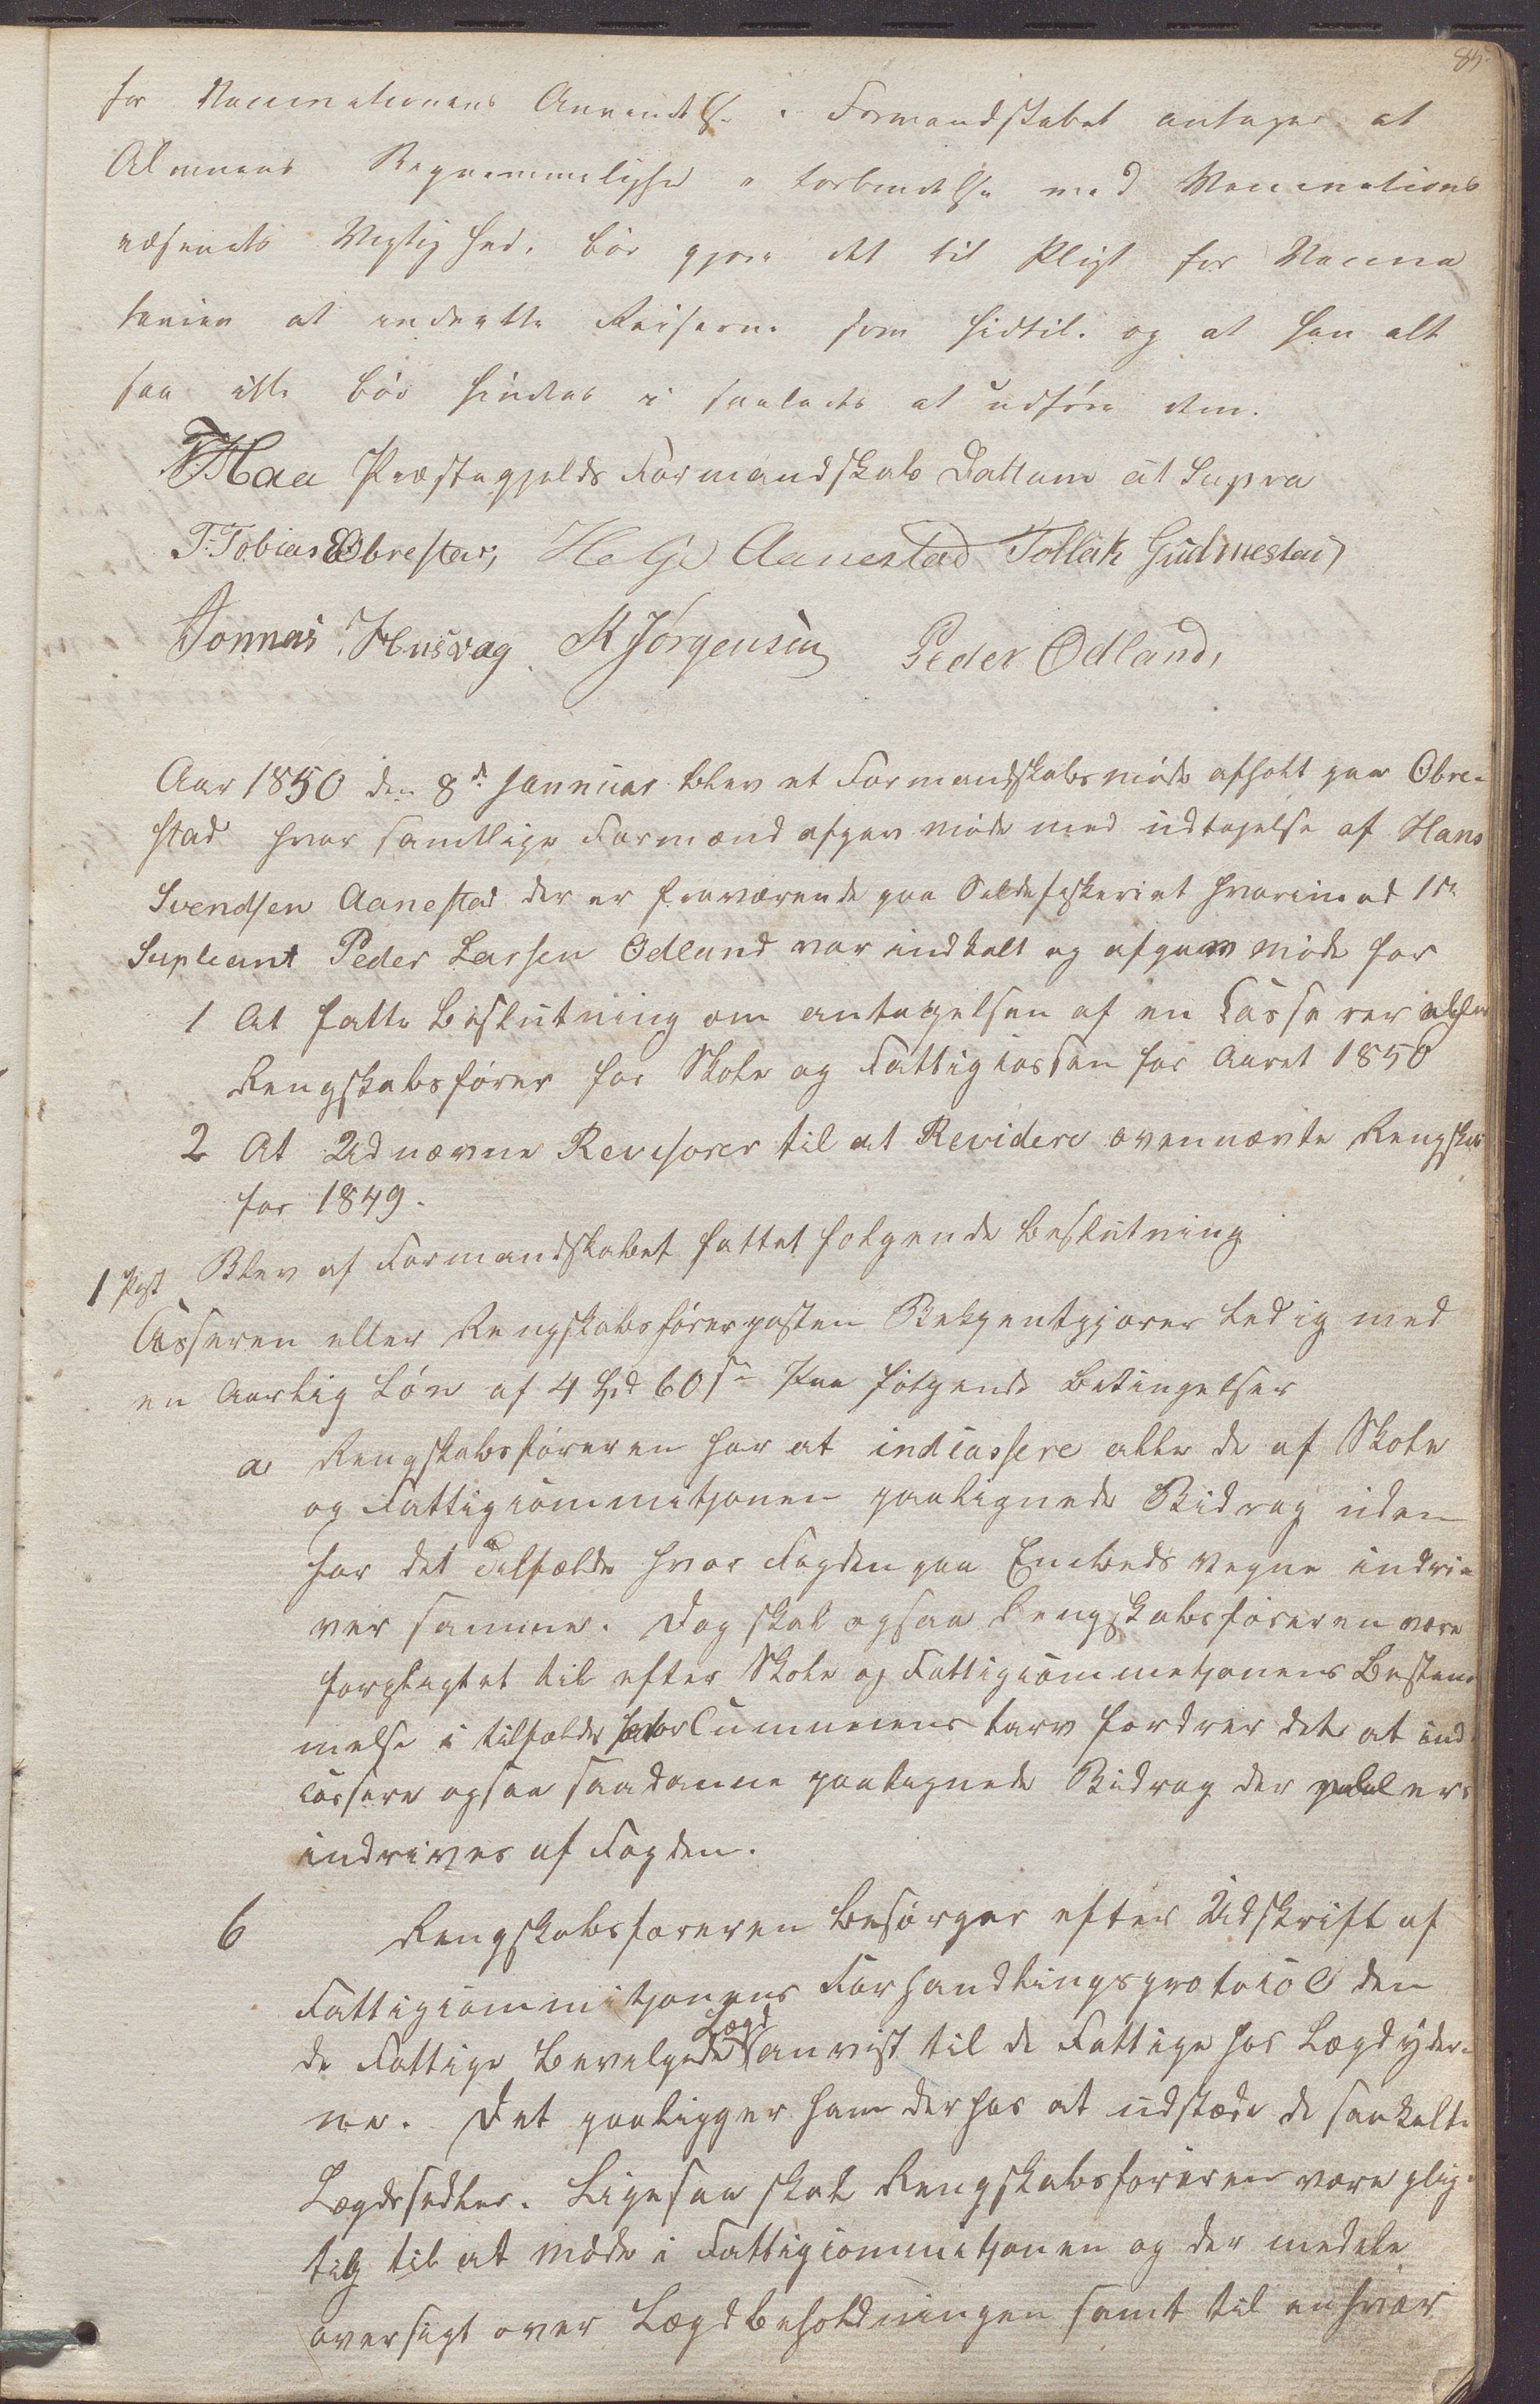 85.
for Vaccinationens Anvendelse. Formandskabet antager at
Almuens Beqvemmelighed i forbindelse med Vaccinations
væsenets Vigtighed, bör gjøre det til Pligt for Vaccina
teuren at indrette Reiserne som hidtil. og at han alt
saa ikke bör hindres i saaledes at udføre dem.
Haa Præstegjelds Formandskab Dattum ut Supra
T. Tobias Obrestad, Helje Aanestad Tollak Gudmestad
Jonnas Husvæg K Jörgensen Peder Ödland,
Aar 1850 den 8de Januar blev et Formandskabs möde afholt paa Obre-
stad hvor samtlige Formænd afgav møde med undtagelse af Hans
Svendsen Aanestad der er fraværende paa Sildefiskeriet hvorimod 1ste
Supleant Peder Larsen Ödland var indkalt og afgav Møde for
1 At fatte Beslutning om antagelsen af en Casserer eller
Rengskabsfører for Skole og Fattigcassen for Aaret 1850
2 At Udnævne Revisorer til at Revidere ovennævnte Rengskab
for 1849.
1 Post Blev af Formandskabet fattet følgende Beslutning
Casserer eller Rengskabsførerposten Bekjentgjøres ledig med
en Aarlig Lön af 4 Spd 60 s Paa følgende Betingelser
a Rengskabsføreren har at indcassere alle de af Skole
og Fattigcommitjonen paalignede Bidrag uden
for det Tilfælde hvor Fogden paa Embeds vegne indri-
ver samme. Dog skal ogsaa Rengskabsføreren være
forpligtet til efter Skole og Fattigcommitjonens Bestem
melse i tilfælde hvor Cummunens tarv fordrer det at ind-
cassere ogsaa saadanne paalignede Bidrag der ellers
indrives af Fogden.
b Rengskabsføreren Besørger efter Udskrift af
Fattigcommitjonens Forhandlingsprotocol den
de Fattige Bevilgede Lægd anvist til de Fattige hos Lægdyder-
ne. Det paaligger ham derhos at udstæde de saakalte
Lægdssedler. Ligesaa skal Rengskabsføreren være plig-
tig til at møde i Fattigcommitjonen og der meddele
oversigt over Lægdbeholdningen samt til enhver